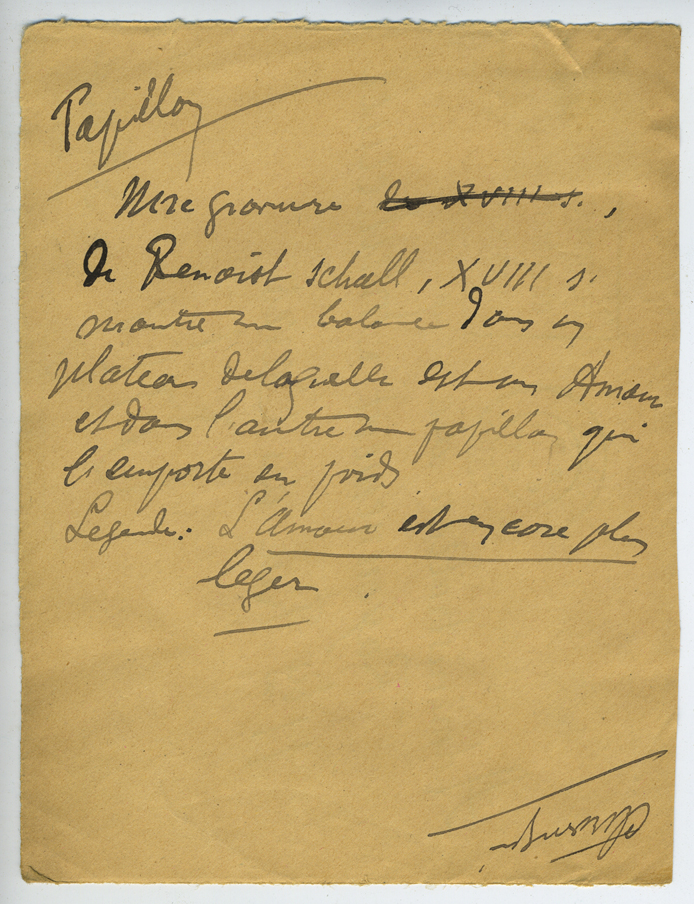 Papillon
Une gravure du XVIIIe s.,
de Benoist Schall, XVIII s.
montre une balance dans un
plateau de laquelle est un Amour
et dans l'autre un papillon qui
l'emporte en poids
Légende : L'Amour est encore plus
léger.